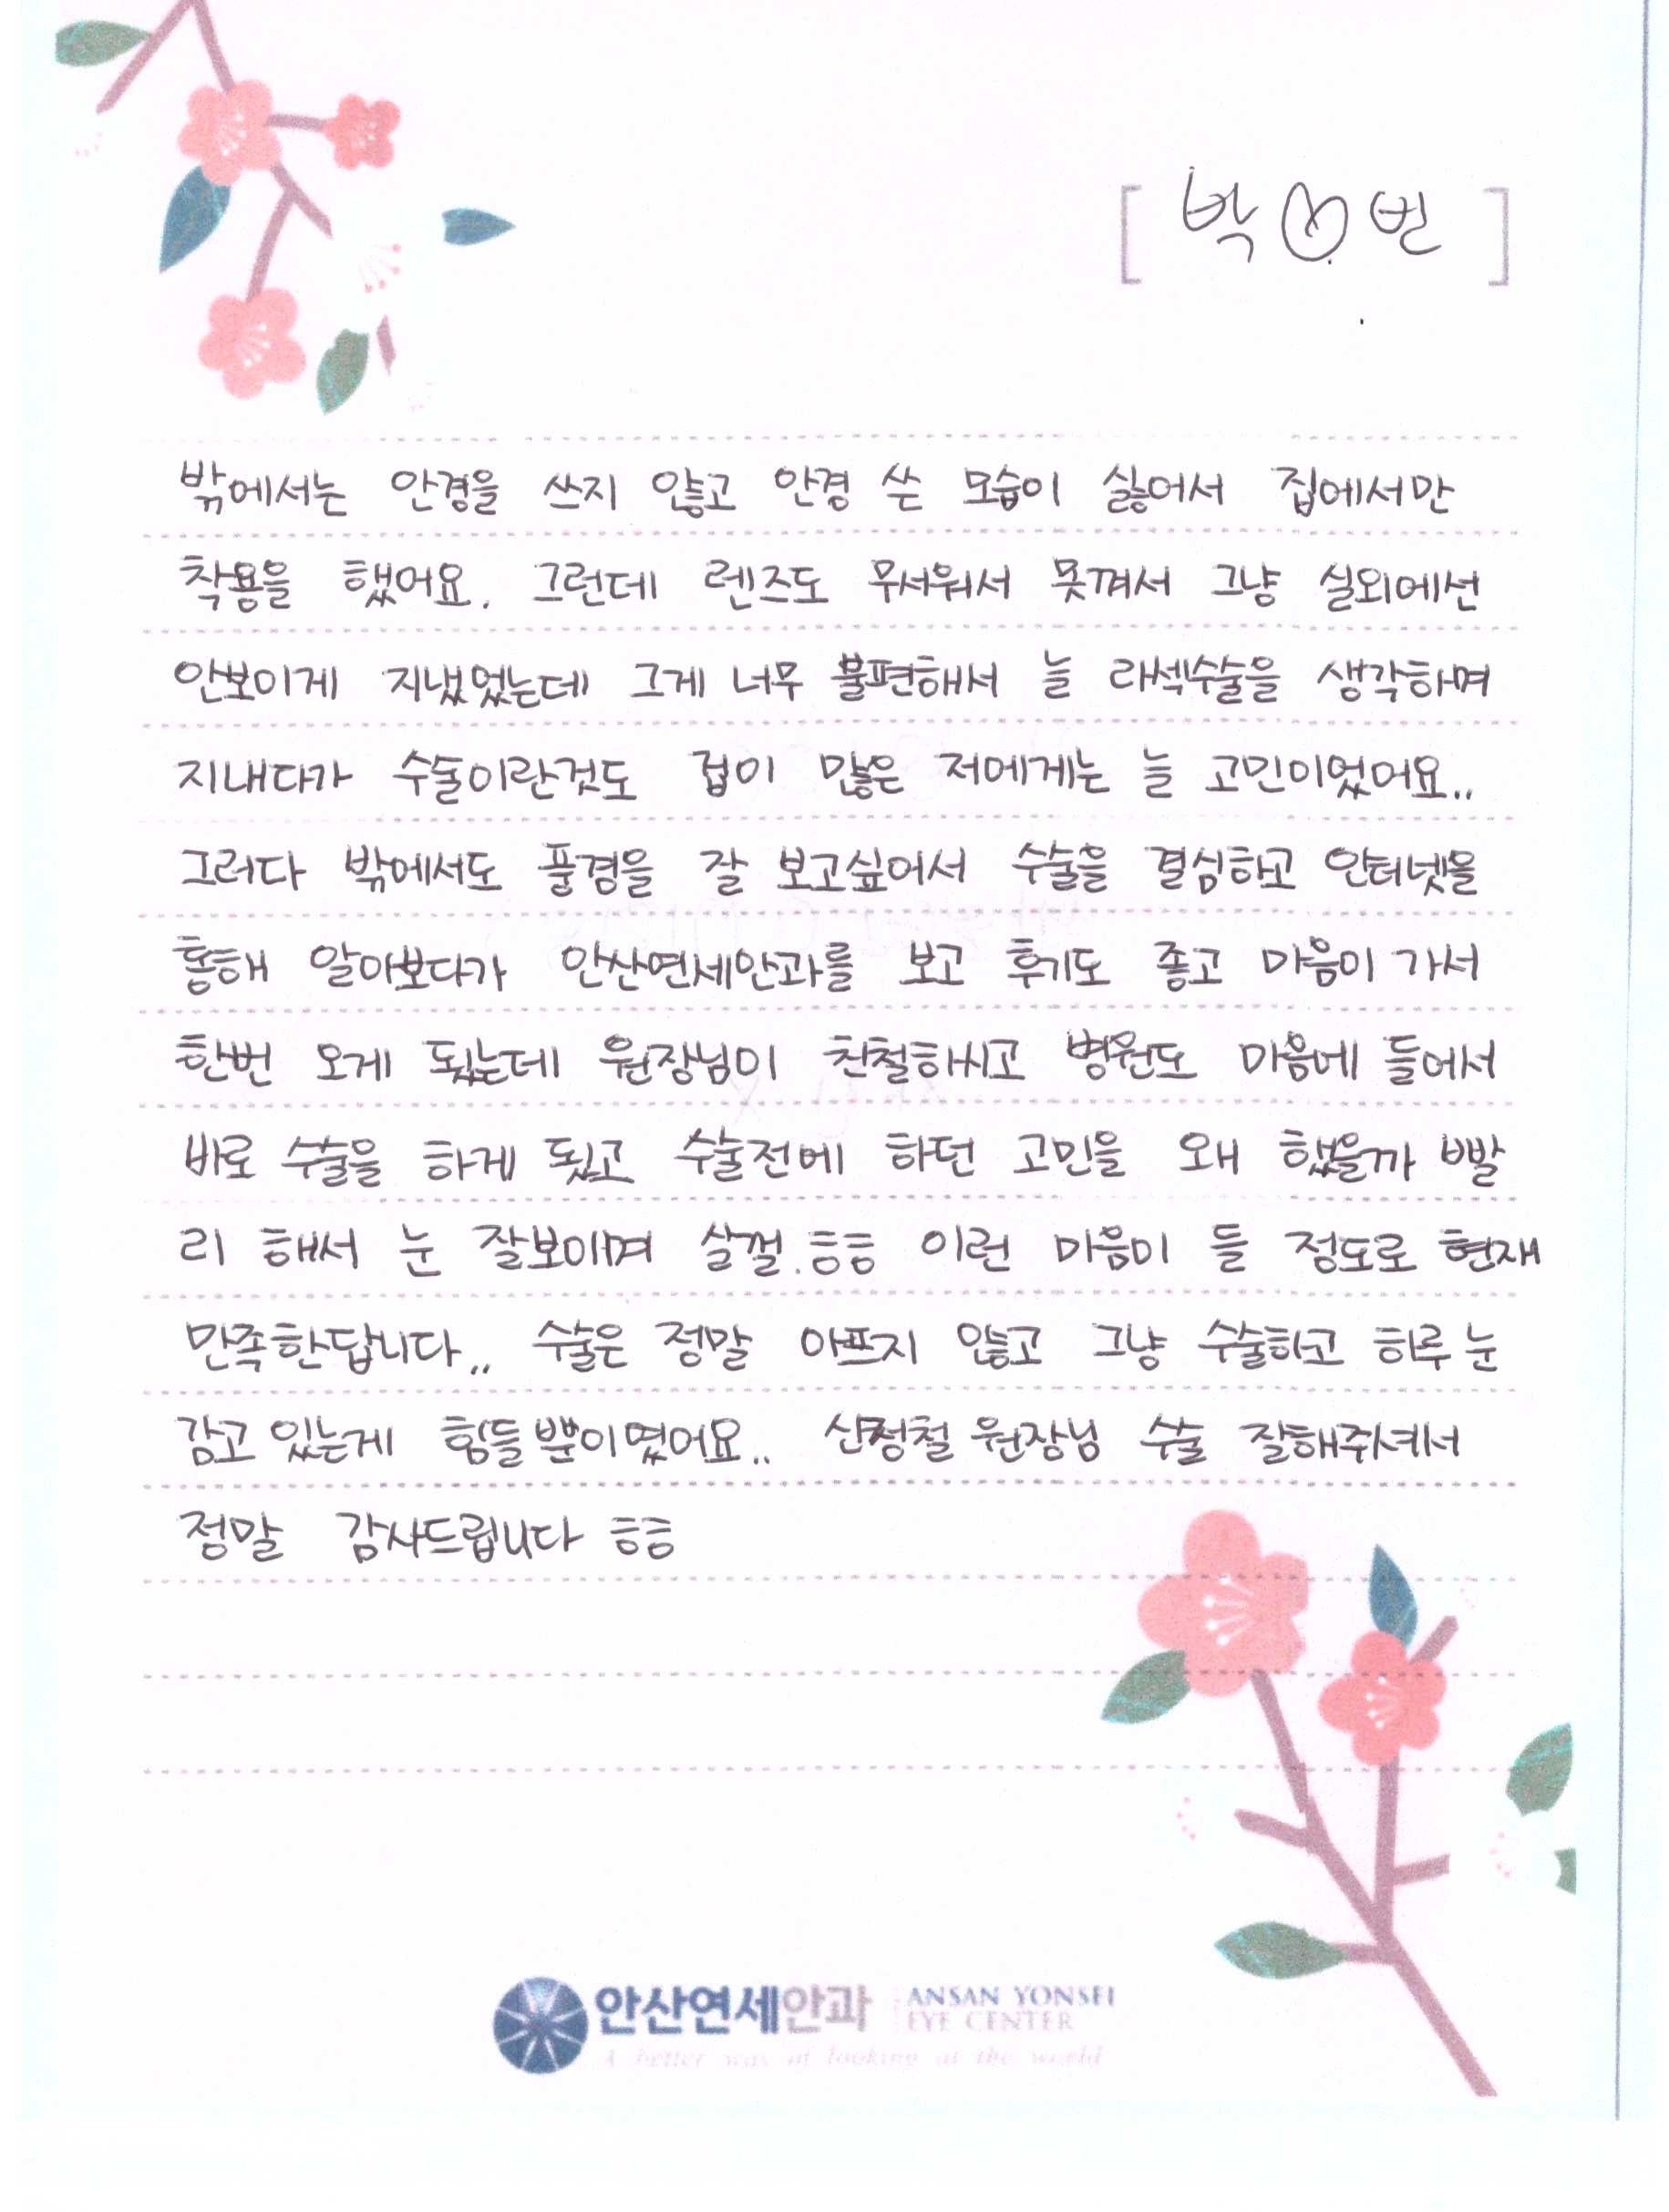 [ 박 번 ]
밖에서는 안경을 쓰지 않고 안경 쓴 모습이 싫어서 집에서만
착용을 했어요. 그런데 렌즈도 무서워서 못껴서 그냥 실외에선
안보이게 지냈었는데 그게 너무 불편해서 늘 라섹수술을 생각하며
지내다가 수술이란것도 겁이 많은 저에게는 늘 고민이었어요..
그러다 밖에서도 풍경을 잘 보고싶어서 수술을 결심하고 인터넷을
통해 알아보다가 안산연세안과를 보고 후기도 좋고 마음이 가서
한번 오게 됬는데 원장님이 친철하시고 병원도 마음에 들어서
바로 수술을 하게 됬고 수술전에 하던 고민을 왜 했을까 빨
리 해서 눈 잘보이며 살껄.ㅎㅎ 이런 마음이 들 정도로 현재
만족한답니다.. 수술은 정말 아프지 않고 그냥 수술하고 하루 눈
감고 있는게 힘들뿐이였어요.. 신정철 원장님 수술 잘해주셔서
정말 감사드립니다 ㅎㅎ
안산연세안과 ANSAN YONSEI
EYE CENTER
A better way of looking at the world